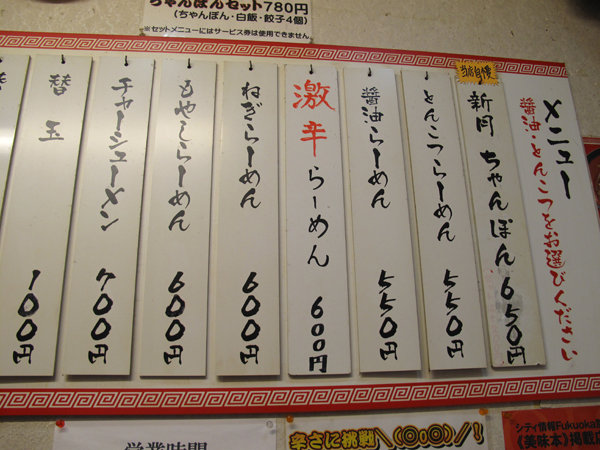 ちゃんぽんセット780円
(ちゃんぽん・白飯・餃子4個)
※セットメニューにはサービス券は使用できません
メニュー
醤油・とんこつをお選びください
当店自慢
新月ちゃんぽん650円
とんこつらーめん 550円
醤油らーめん 550円
激辛らーめん 600円
ねぎらーめん 600円
もやしらーめん 600円
チャーシューメン 700円
替玉 100円
替
営業時間
辛さに挑戦＼(◎o◎)／!
シティ情報Fukuoka
《美味本》掲載